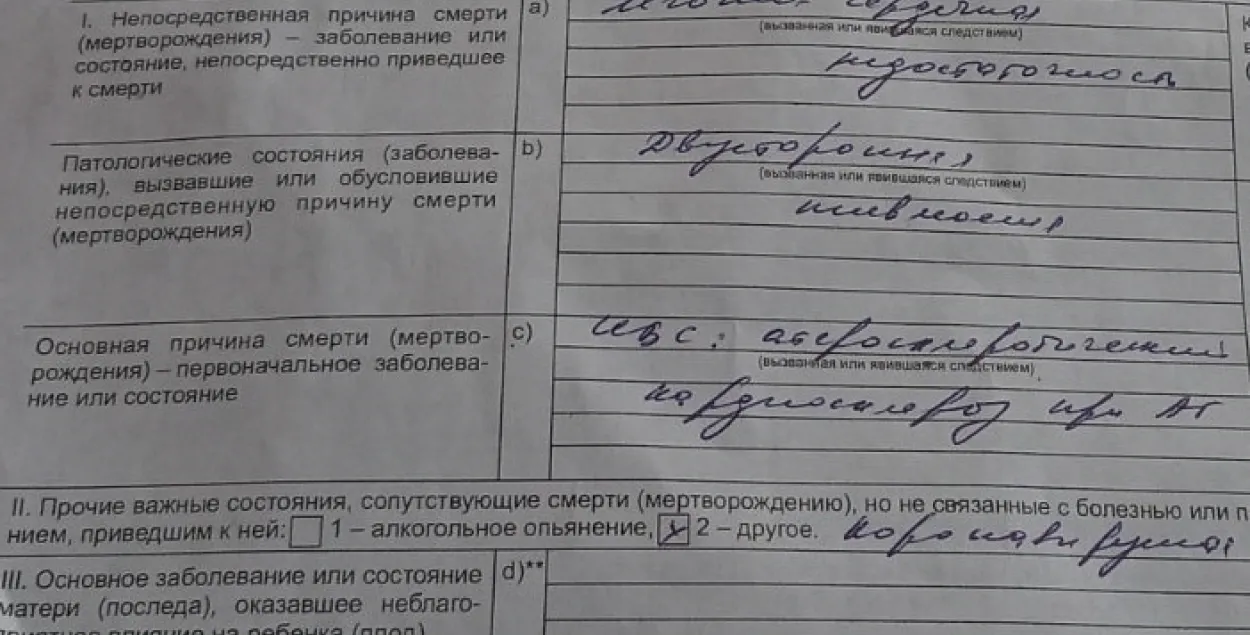 I. Непосредственная причина смерти
(мертворождения) – заболевание или
состояние, непосредственно приведшее
к смерти
a)
сердечная
(вызванная или явившаяся следствием)
недостаточность
Патологические состояния (заболева-
ния), вызвавшие или обусловившие
непосредственную причину смерти
(мертворождения)
b)
Двусторонняя
(вызванная или явившаяся следствием)
пневмония
Основная причина смерти (мертво-
рождения) – первоначальное заболева-
ние или состояние
c)
ИБС: атеросклеротический
(вызванная или явившаяся следствием)
кардиосклероз при АГ
II. Прочие важные состояния, сопутствующие смерти (мертворождению), но не связанные с болезнью или п
нием, приведшим к ней: 1 – алкогольное опьянение, x 2 – другое. Коронавирусная
III. Основное заболевание или состояние
матери (последа), оказавшее неблаго-
приятное влияние на ребенка (плод)
d)**